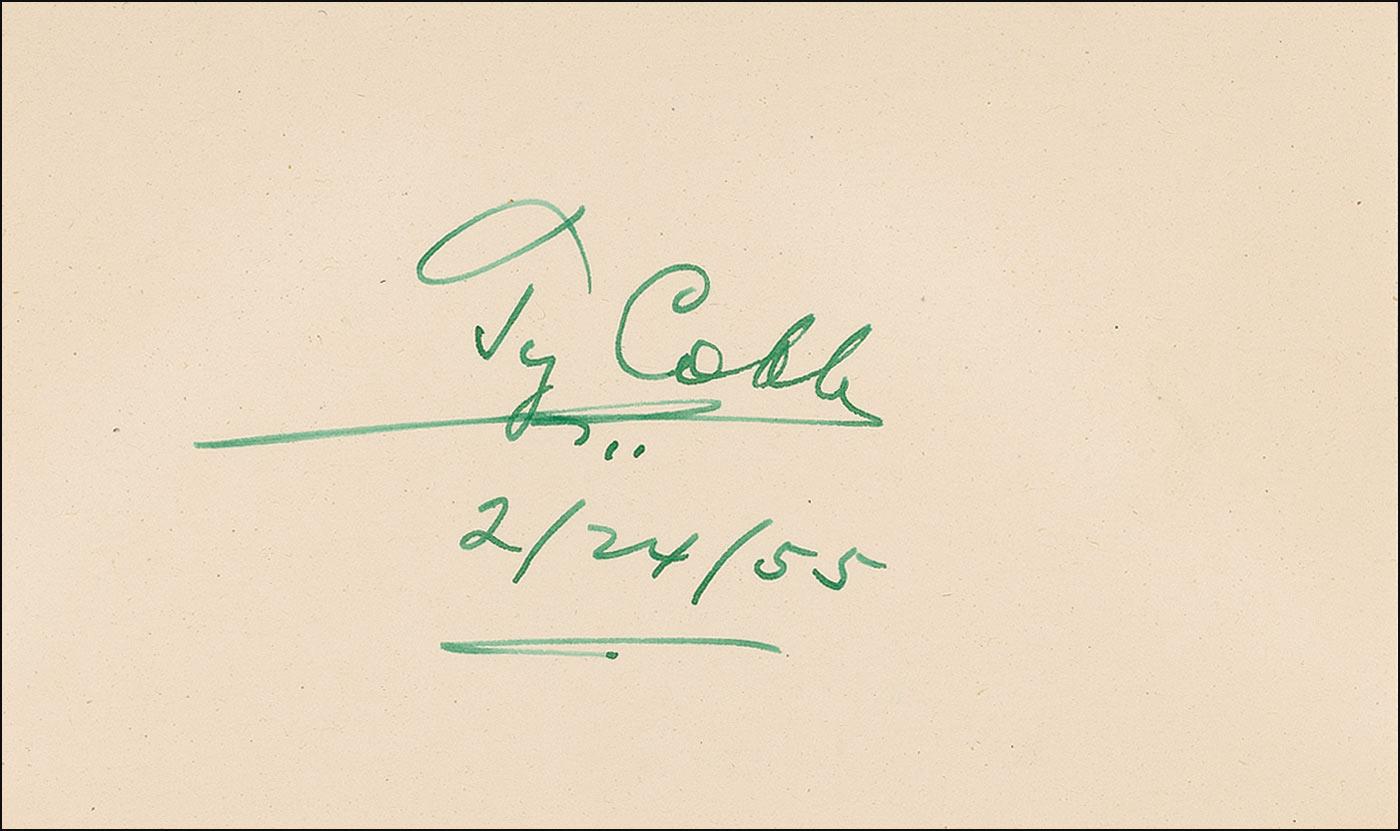 Ty Cobb
2/24/55